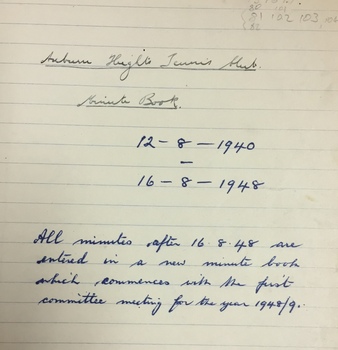 81 102 103
Auburn Heights Tennis Club.
Minute Book.
12 - 8 - 1940
-
16 - 8 - 1948
All minutes after 16.8.48 are
entered in a new minute book
which commences with the first
committee meeting for the year 1948/9.